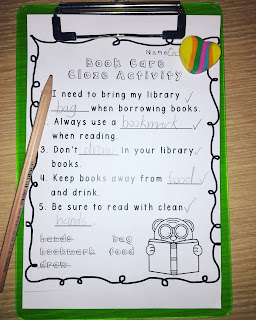 Name
Book Care
Cloze Activity
I need to bring my library
bag when borrowing books.
Always use a bookmark
when reading.
3. Don't draw in your library
books.
4. Keep books away from food
and drink.
5. Be sure to read with clean
hands.
hands bag
bookmark food
draw